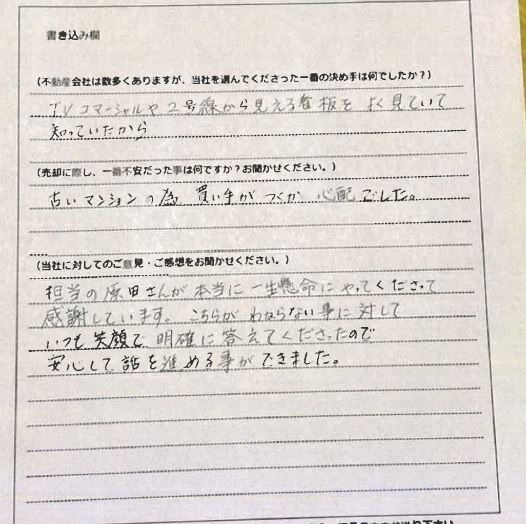 書き込み欄
(不動産会社は数多くありますが、当社を選んでくださった一番の決め手は何でしたか?)
TVコマーシャルや2号線から見える看板を よく見ていて
知っていたから
(売却に際し、一番不安だった事は何ですか?お聞かせください。)
古いマンションの為 買い手がつくか 心配でした。
(当社に対してのご意見・ご感想をお聞かせください。)
担当の原田さんが本当に一生懸命にやってくださって
感謝しています。こちらが わからない事に対して
いつも笑顔で 明確に答えてくださったので
安心して話を進める事ができました。